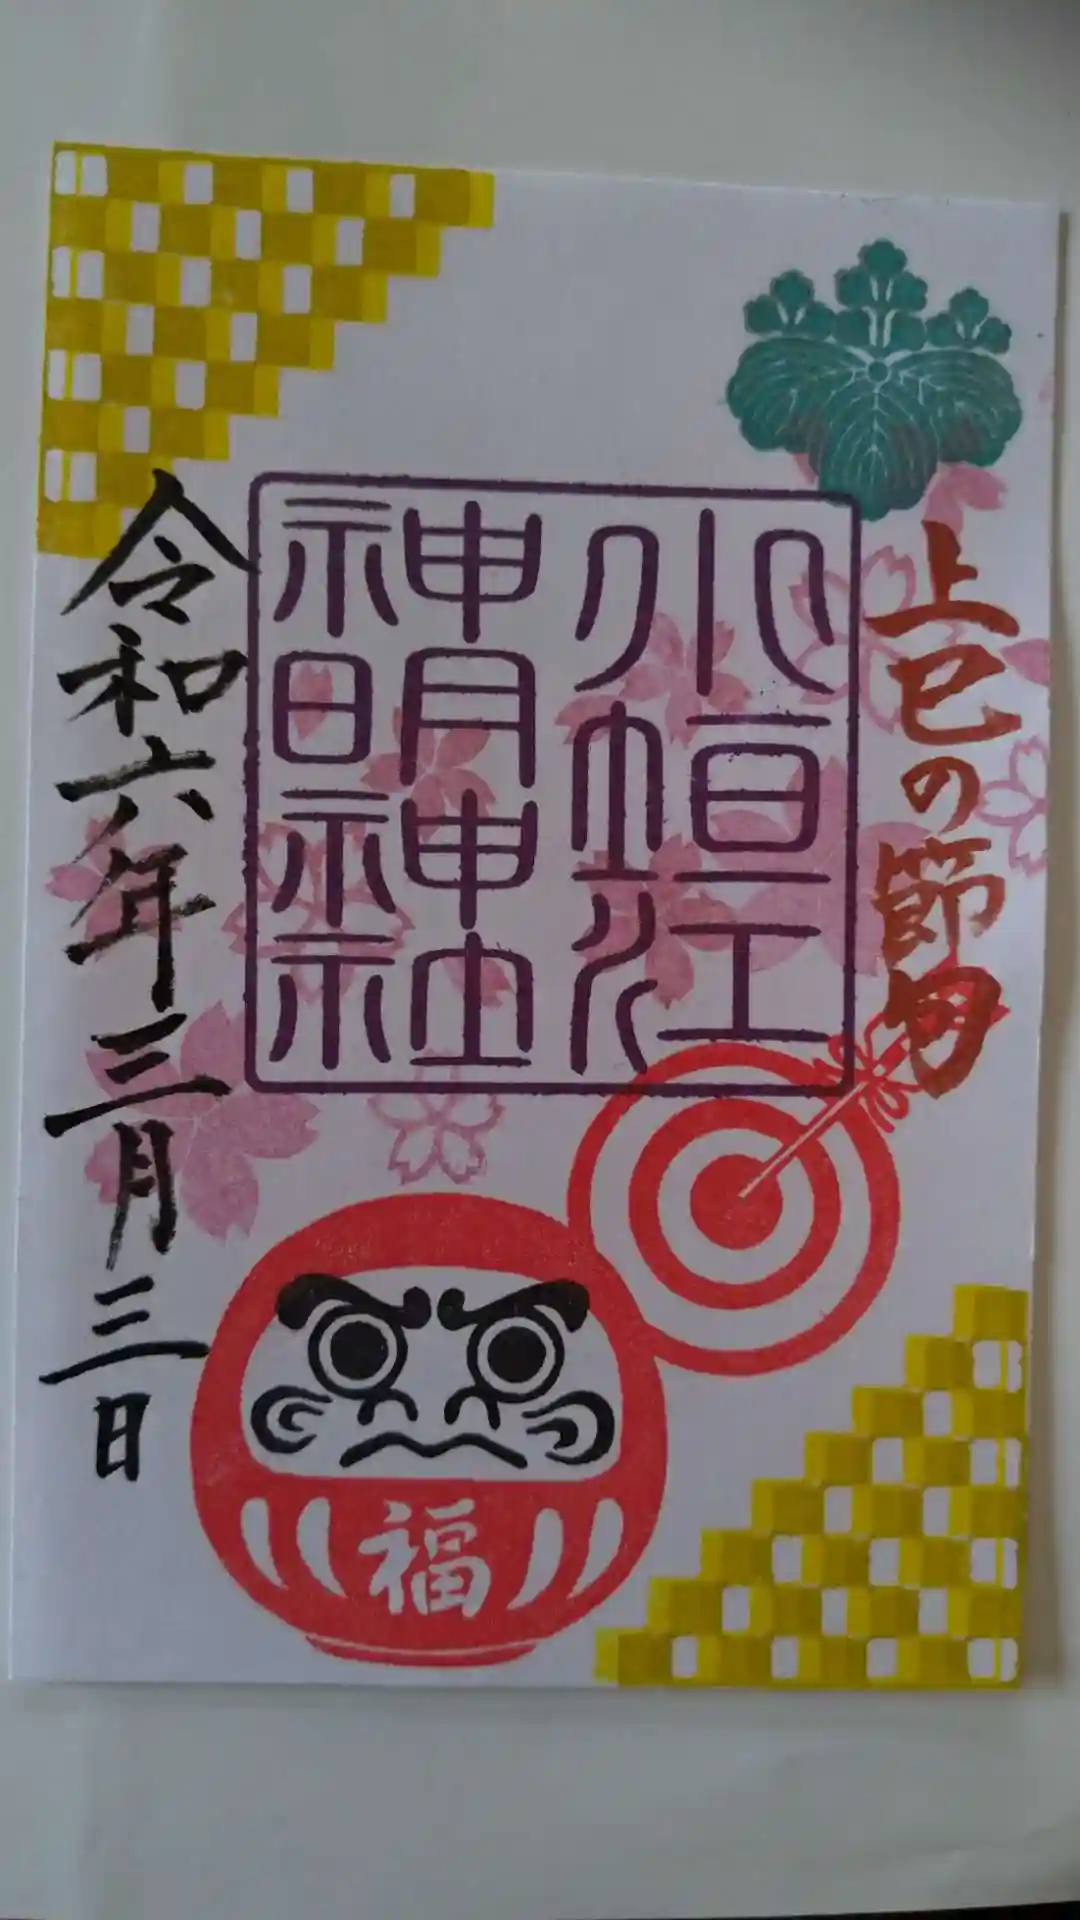 上巳の節句
小垣江
神明神社
令和六年三月三日
福